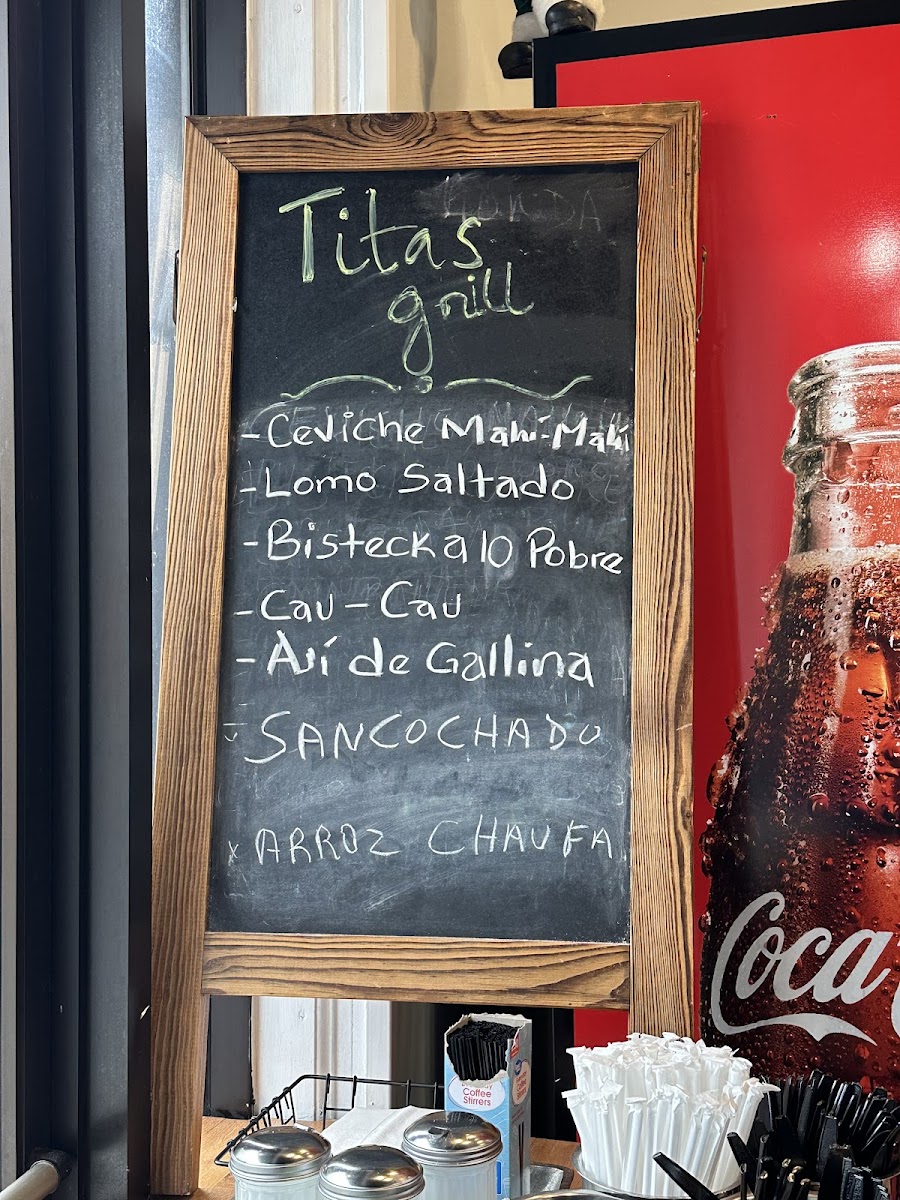 Titas
grill
- Ceviche Mahi-Mahi
- Lomo Saltado
- Bisteck a lo Pobre
- Cau - Cau
- Ají de Gallina
- SANCOCHADO
x ARROZ CHAUFA
Coca
Coffee
Stirrers